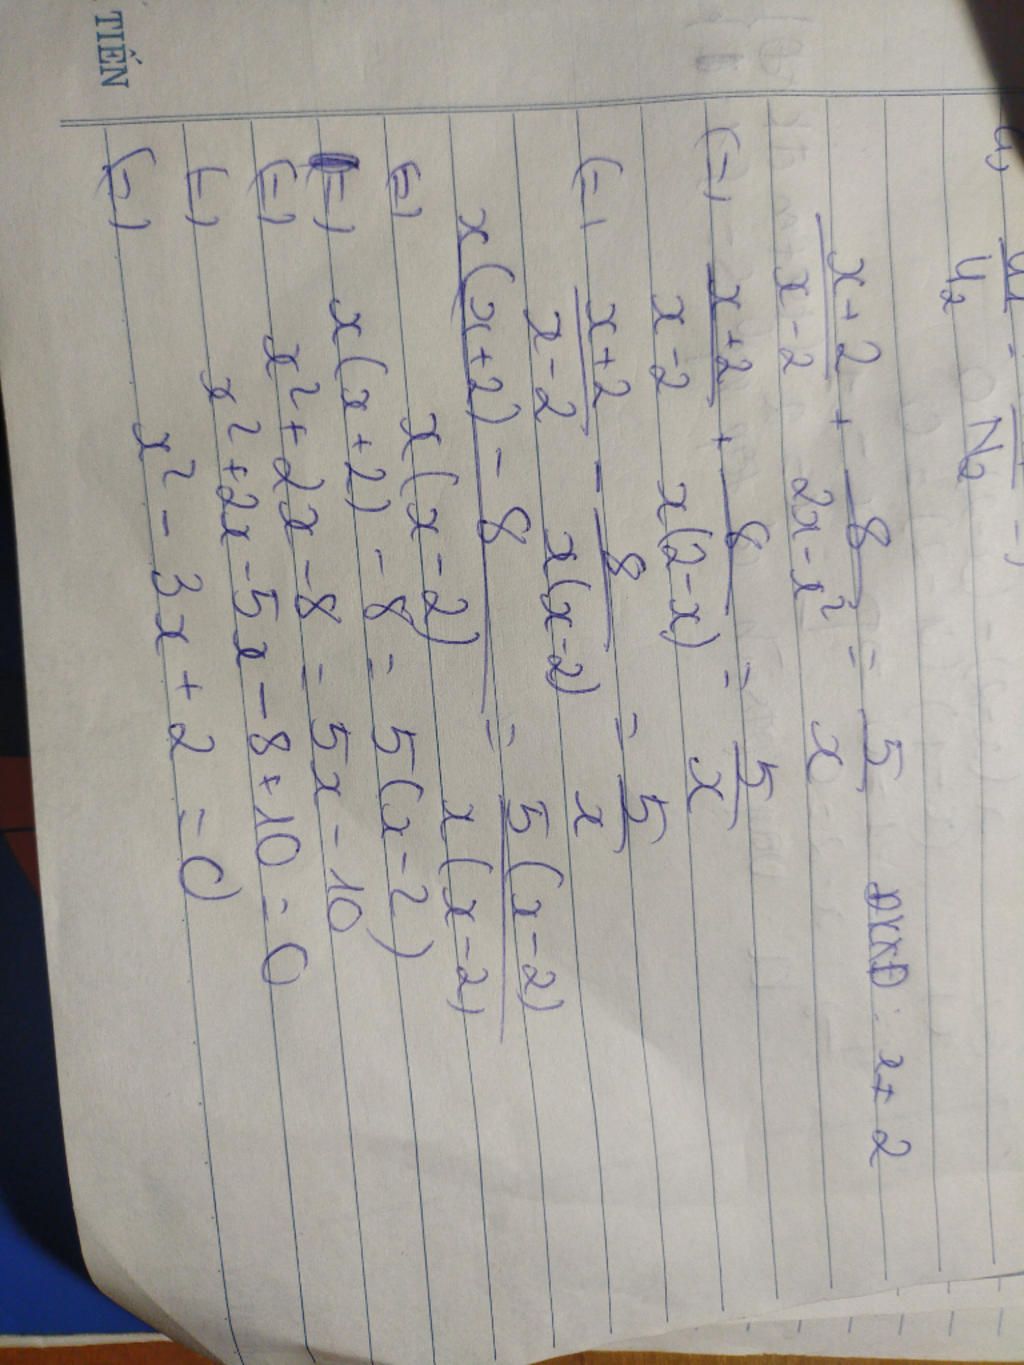 TIẾN
U₂ N₂
x+2/x-2 + 8/2x-x² = 5/x ĐKXĐ: x≠2
(=) x+2/x-2 + 8/x(2-x) = 5/x
(=) x+2/x-2 - 8/x(x-2) = 5/x
(=) x(x+2)-8/x(x-2) = 5(x-2)/x(x-2)
(=) x(x+2)-8 = 5(x-2)
(=) x²+2x-8 = 5x-10
(=) x²+2x-5x-8+10=0
(=) x²-3x+2=0